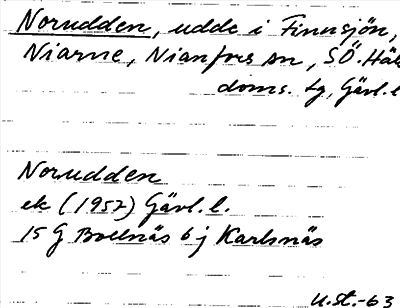 Norudden, udde i Finnsjön,
Niarne, Nianfors sn, SÖ. Häl
doms. tg, Gävl. l
Norudden
ek (1957) Gävl. l.
15 G Bollnäs 6 j Karlsnäs
U.st.-63